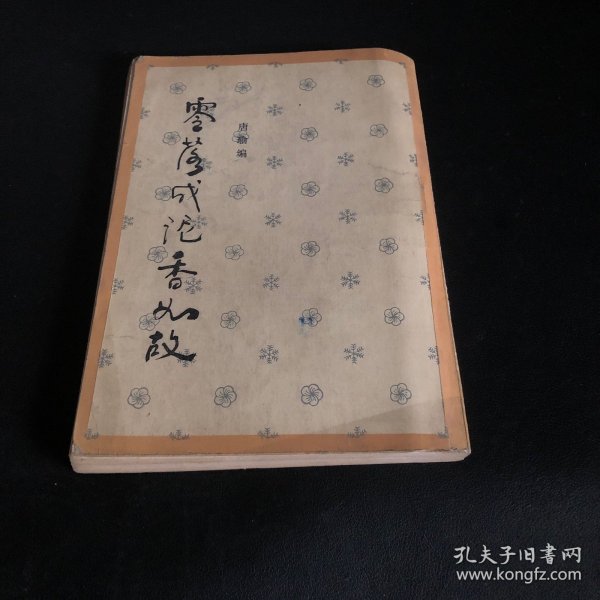 零落成泥香如故
唐瑜编
孔夫子旧书网
www.kongfz.com